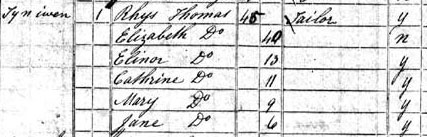 Tyn iwen 1 Rhys Thomas 45 Tailor y
Elizabeth Do 40 n
Elinor Do 13 y
Cathrine Do 11 y
Mary Do 9 y
Jane Do 6 y